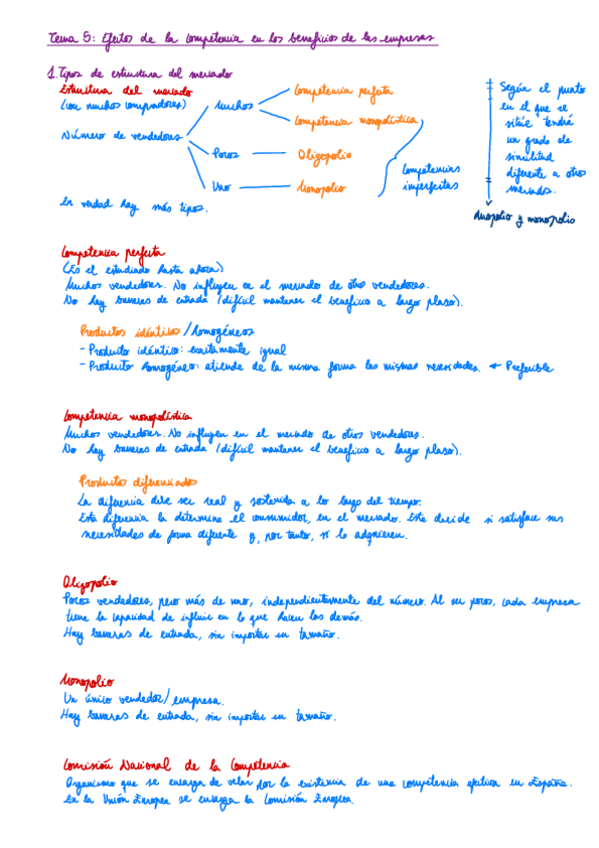 Tema 5: Efectos de la competencia en los beneficios de las empresas
1. Tipos de estructura del mercado
Estructura del mercado
(con muchos compradores)
Número de vendedores
Muchos
Competencia perfecta
Competencia monopolística
Pocos
Oligopolio
Uno
Monopolio
Competencias
imperfectas
En verdad hay más tipos.
Según el punto
en el que se
sitúe tendrá
un grado de
similitud
diferente a otros
mercados.
duopolio y monopolio
Competencia perfecta
(Es el estudiado hasta ahora)
Muchos vendedores. No influyen en el mercado de otros vendedores.
No hay barreras de entrada (difícil mantener el beneficio a largo plazo).
Productos idénticos/homogéneos
- Producto idéntico: exactamente igual
- Producto homogéneo: atiende de la misma forma las mismas necesidades. ← Preferible
Competencia monopolística
Muchos vendedores. No influyen en el mercado de otros vendedores.
No hay barreras de entrada (difícil mantener el beneficio a largo plazo).
Productos diferenciados
La diferencia debe ser real y sostenida a lo largo del tiempo.
Esta diferencia la determina el consumidor, en el mercado. Este decide si satisface sus
necesidades de forma diferente y, por tanto, si lo adquieren.
Oligopolio
Pocos vendedores, pero más de uno, independientemente del número. Al ser pocos, cada empresa
tiene la capacidad de influir en lo que hacen las demás.
Hay barreras de entrada, sin importar su tamaño.
Monopolio
Un único vendedor/empresa.
Hay barreras de entrada, sin importar su tamaño.
Comisión Nacional de la Competencia
Organismo que se encarga de velar por la existencia de una competencia efectiva en España.
En la Unión Europea se encarga la Comisión Europea.